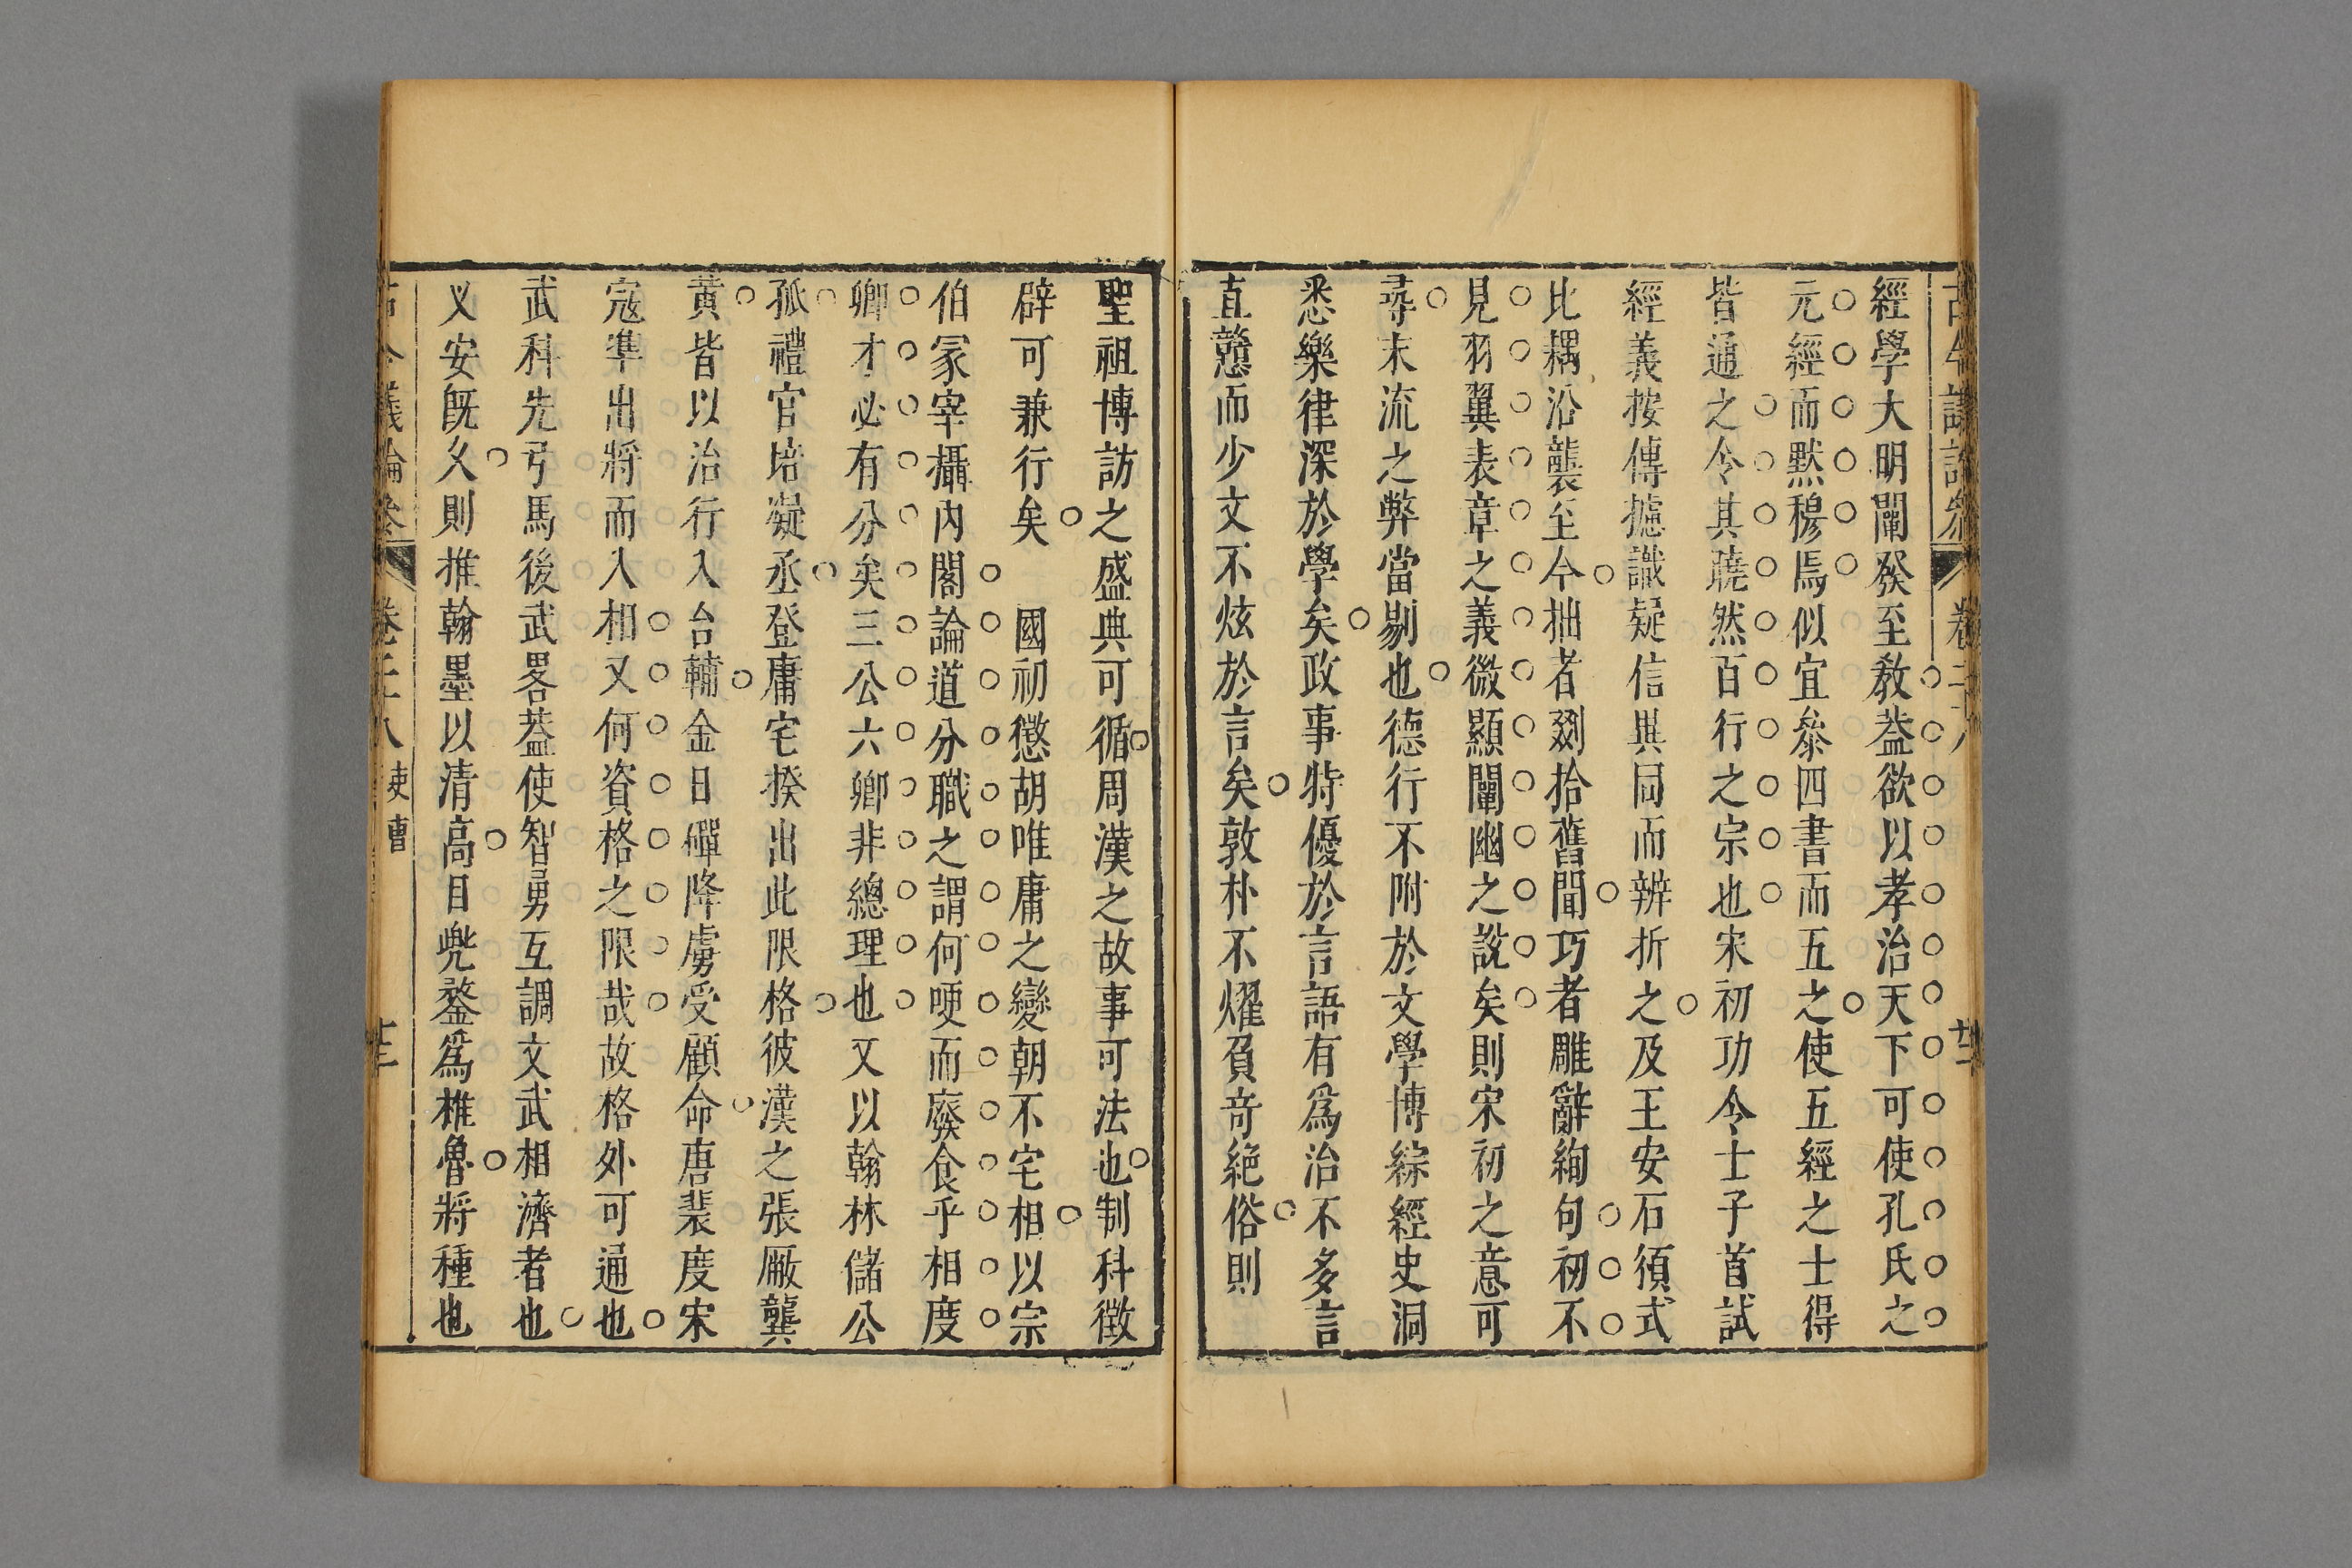 經學大明闡發至教葢欲以孝治天下可使孔氏之
元經而默穆焉似宜叅四書而五之使五經之士得
皆通之令其曉然百行之宗也宋初功令士子首試
經義按傳攄識疑信異同而辨折之及王安石須式
比耦沿襲至今拙者剟拾舊聞巧者雕辭絢句初不
見羽翼表章之義微顯闡幽之說矣則宋初之意可
尋末流之弊當剔也德行不附於文學博綜經史洞
悉樂律深於學矣政事特優於言語有爲治不多言
直戇而少文不炫於言矣敦朴不燿負竒絶俗則
聖祖博訪之盛典可循周漢之故事可法也制科徵
辟可兼行矣　國初懲胡唯庸之變朝不宅相以宗
伯冢宰攝內閣論道分職之謂何哽而廢食乎相度
卿才必有分矣三公六卿非總理也又以翰林儲公
孤禮官培凝丞登庸宅揆出此限格彼漢之張厰龔
黄皆以治行入台輔金日磾降虜受顧命唐裴度宋
寇準出將而入相又何資格之限哉故格外可通也
武科先弓馬後武畧葢使智勇互調文武相濟者也
乂安旣久則推翰墨以清高目兠鍪爲椎魯將種也